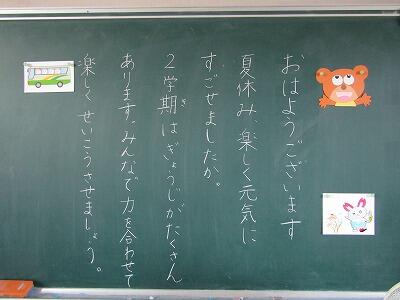 おはようございます
夏休み、楽しく元気に
すごせましたか。
2学期はぎょうじがたくさん
あります。みんなで力を合わせて
楽しくせいこうさせましょう。